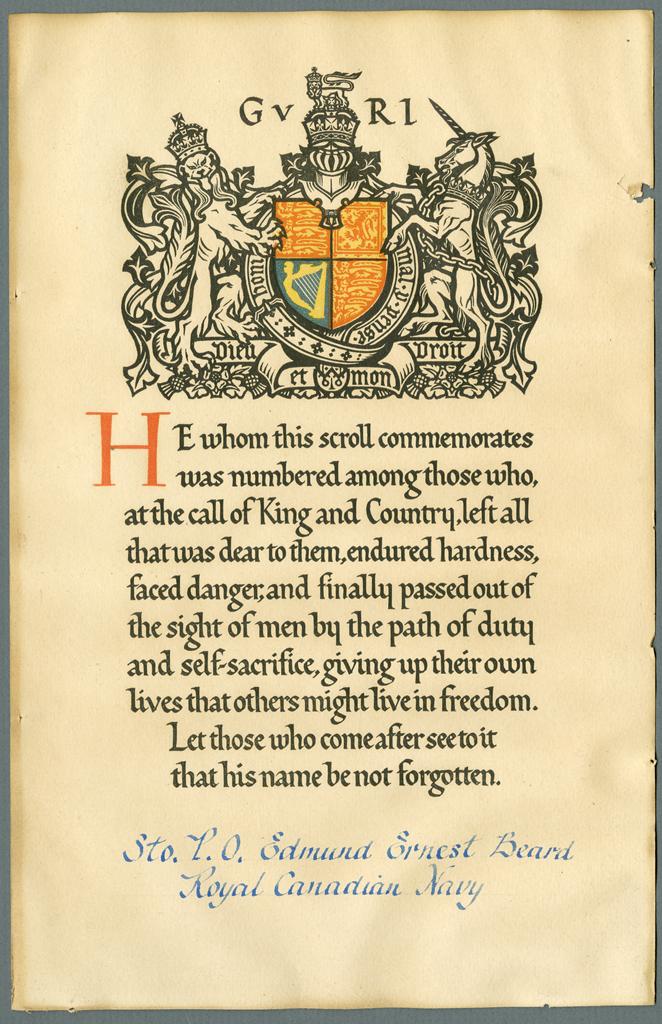 GvRI
Dieu et mon Droit
HE whom this scroll commemorates
was numbered among those who,
at the call of King and Country, left all
that was dear to them, endured hardness,
faced danger, and finally passed out of
the sight of men by the path of duty
and self-sacrifice, giving up their own
lives that others might live in freedom.
Let those who come after see to it
that his name be not forgotten.
Sto. P.O. Edmund Ernest Beard
Royal Canadian Navy